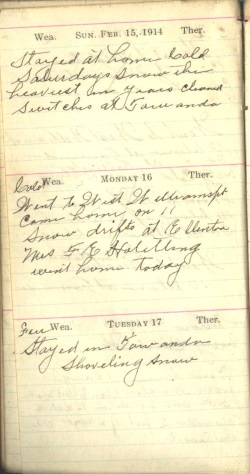 Wea. SUN. FEB. 15, 1914 Ther.
Stayed at home Cold
Saturdays Snow the
heaviest in years cleaned
Switches at Towanda
Cold Wea. MONDAY 16 Ther.
Went to West Williamspt
Came home on 11
Snow drifts at
Mrs F. E
went home today
Wea. TUESDAY 17 Ther.
Stayed in Towanda
Shoveling Snow